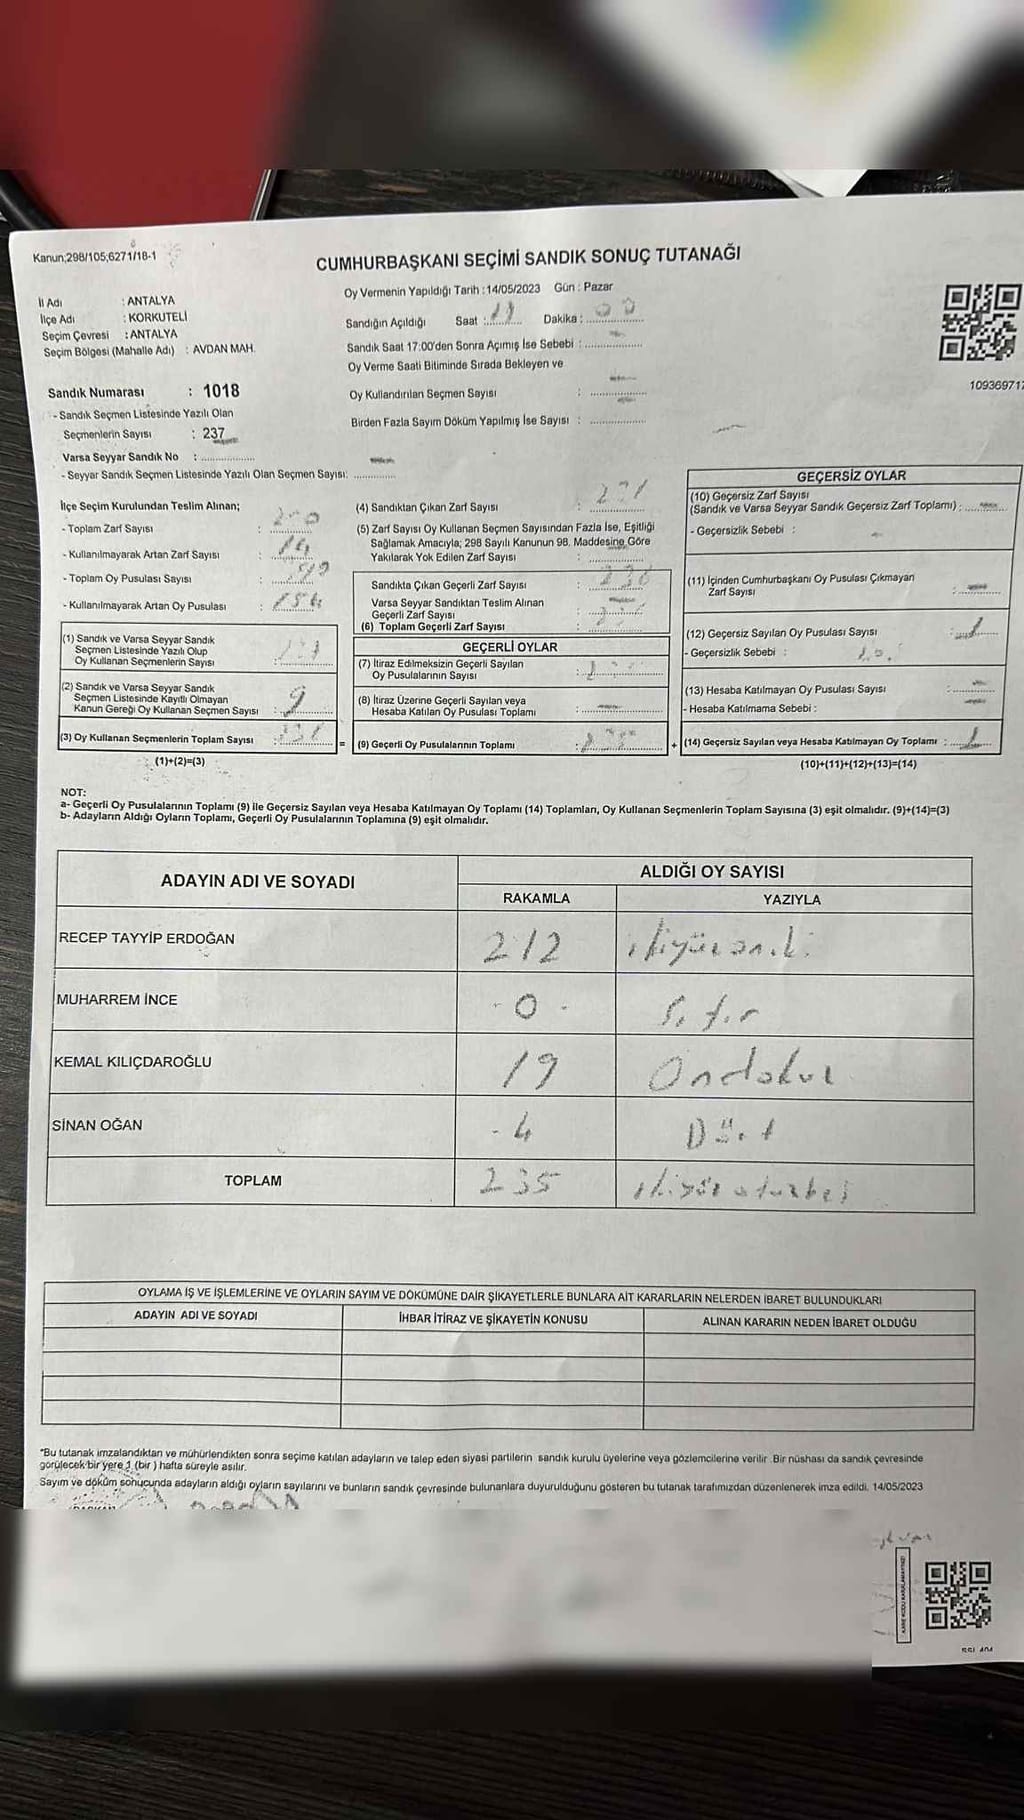 Kanun;298/105;6271/18-1
CUMHURBAŞKANI SEÇİMİ SANDIK SONUÇ TUTANAĞI
İl Adı : ANTALYA
İlçe Adı : KORKUTELİ
Seçim Çevresi : ANTALYA
Seçim Bölgesi (Mahalle Adı) : AVDAN MAH.
Oy Vermenin Yapıldığı Tarih :14/05/2023 Gün : Pazar
Sandığın Açıldığı Saat : Dakika :
Sandık Saat 17:00'den Sonra Açımış İse Sebebi :
Oy Verme Saati Bitiminde Sırada Bekleyen ve
Oy Kullandırılan Seçmen Sayısı :
Birden Fazla Sayım Döküm Yapılmış İse Sayısı :
10936971
Sandık Numarası : 1018
- Sandık Seçmen Listesinde Yazılı Olan
Seçmenlerin Sayısı : 237
Varsa Seyyar Sandık No :
- Seyyar Sandık Seçmen Listesinde Yazılı Olan Seçmen Sayısı:
İlçe Seçim Kurulundan Teslim Alınan;
- Toplam Zarf Sayısı :
- Kullanılmayarak Artan Zarf Sayısı :
- Toplam Oy Pusulası Sayısı :
- Kullanılmayarak Artan Oy Pusulası :
(1) Sandık ve Varsa Seyyar Sandık
Seçmen Listesinde Yazılı Olup
Oy Kullanan Seçmenlerin Sayısı :
(2) Sandık ve Varsa Seyyar Sandık
Seçmen Listesinde Kayıtlı Olmayan
Kanun Gereği Oy Kullanan Seçmen Sayısı : 9
(3) Oy Kullanan Seçmenlerin Toplam Sayısı :
(1)+(2)=(3)
(4) Sandıktan Çıkan Zarf Sayısı :
(5) Zarf Sayısı Oy Kullanan Seçmen Sayısından Fazla İse, Eşitliği
Sağlamak Amacıyla; 298 Sayılı Kanunun 98. Maddesine Göre
Yakılarak Yok Edilen Zarf Sayısı :
Sandıkta Çıkan Geçerli Zarf Sayısı : 236
Varsa Seyyar Sandıktan Teslim Alınan
Geçerli Zarf Sayısı :
(6) Toplam Geçerli Zarf Sayısı :
GEÇERLİ OYLAR
(7) İtiraz Edilmeksizin Geçerli Sayılan
Oy Pusulalarının Sayısı :
(8) İtiraz Üzerine Geçerli Sayılan veya
Hesaba Katılan Oy Pusulası Toplamı :
= (9) Geçerli Oy Pusulalarının Toplamı : 235
GEÇERSİZ OYLAR
(10) Geçersiz Zarf Sayısı
(Sandık ve Varsa Seyyar Sandık Geçersiz Zarf Toplamı) :
- Geçersizlik Sebebi :
(11) İçinden Cumhurbaşkanı Oy Pusulası Çıkmayan
Zarf Sayısı :
(12) Geçersiz Sayılan Oy Pusulası Sayısı : 1
- Geçersizlik Sebebi :
(13) Hesaba Katılmayan Oy Pusulası Sayısı :
- Hesaba Katılmama Sebebi :
+ (14) Geçersiz Sayılan veya Hesaba Katılmayan Oy Toplamı : 1
(10)+(11)+(12)+(13)=(14)
NOT:
a- Geçerli Oy Pusulalarının Toplamı (9) ile Geçersiz Sayılan veya Hesaba Katılmayan Oy Toplamı (14) Toplamları, Oy Kullanan Seçmenlerin Toplam Sayısına (3) eşit olmalıdır. (9)+(14)=(3)
b- Adayların Aldığı Oyların Toplamı, Geçerli Oy Pusulalarının Toplamına (9) eşit olmalıdır.
ADAYIN ADI VE SOYADI ALDIĞI OY SAYISI
RAKAMLA YAZIYLA
RECEP TAYYİP ERDOĞAN 212 ikiyüzoniki
MUHARREM İNCE - 0 - Sıfır
KEMAL KILIÇDAROĞLU 19 Ondokuz
SİNAN OĞAN - 4 Dört
TOPLAM 235 ikiyüzotuzbeş
OYLAMA İŞ VE İŞLEMLERİNE VE OYLARIN SAYIM VE DÖKÜMÜNE DAİR ŞİKAYETLERLE BUNLARA AİT KARARLARIN NELERDEN İBARET BULUNDUKLARI
ADAYIN ADI VE SOYADI İHBAR İTİRAZ VE ŞİKAYETİN KONUSU ALINAN KARARIN NEDEN İBARET OLDUĞU
*Bu tutanak imzalandıktan ve mühürlendikten sonra seçime katılan adayların ve talep eden siyasi partilerin sandık kurulu üyelerine veya gözlemcilerine verilir .Bir nüshası da sandık çevresinde
görülecek bir yere 1 (bir ) hafta süreyle asılır.
Sayım ve döküm sonucunda adayların aldığı oyların sayılarını ve bunların sandık çevresinde bulunanlara duyurulduğunu gösteren bu tutanak tarafımızdan düzenlenerek imza edildi. 14/05/2023
KARE KODU KARALAMAYINIZ!